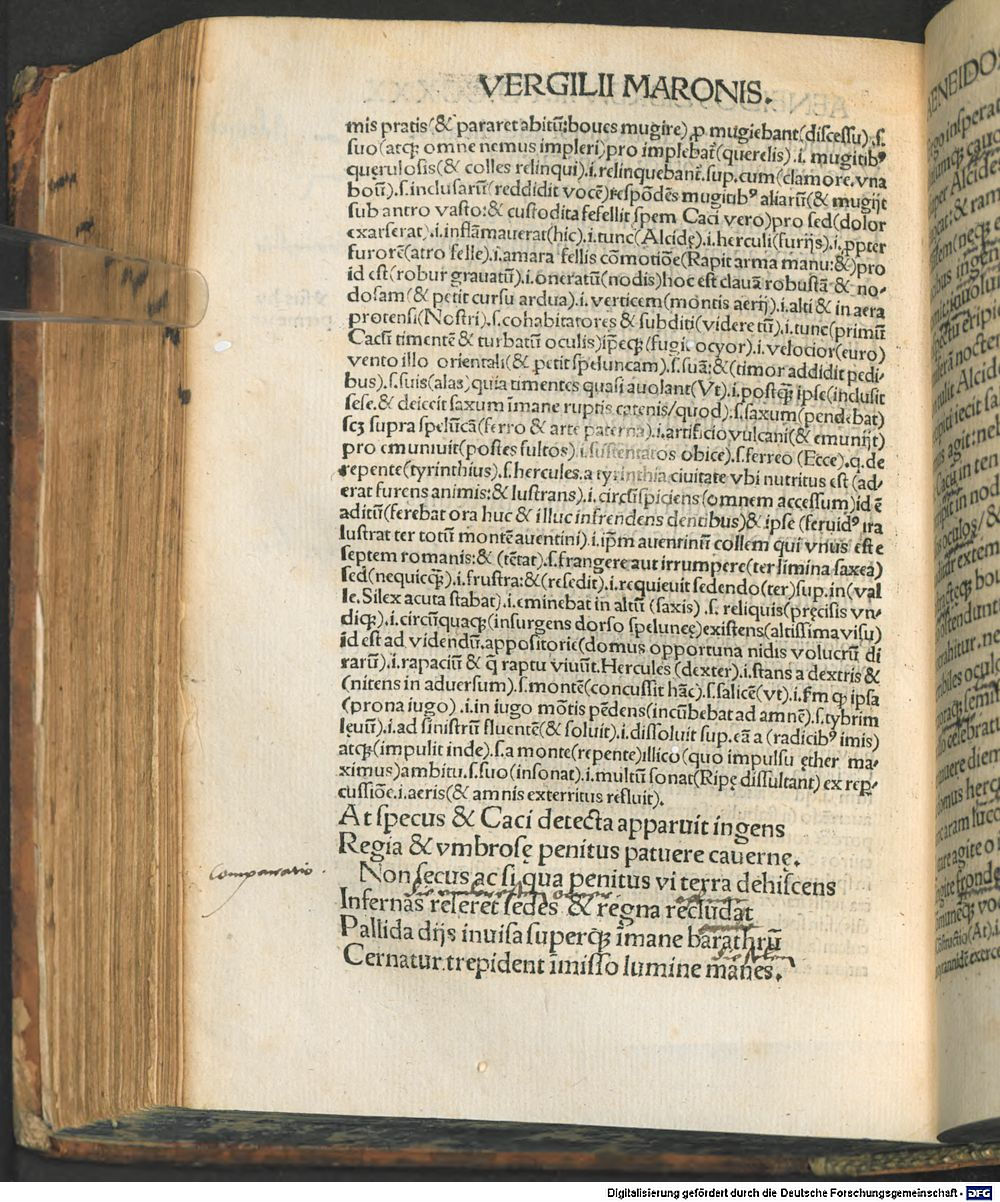 VERGILII MARONIS.
mis pratis(& pararet abitū:boues mugire).ꝓ mugiebant(discessu).s.
suo(atqꝫ omne nemus impleri)pro implebāt(querelis).i. mugitibꝰ
querulosis(& colles relinqui).i.relinquebant.sup.cum(clamore.vna
boū).s.inclusarū(reddidit vocē)respōdēs mugitibꝰ aliarū(& mugijt
sub antro vasto:& custodita fefellit spem Caci vero)pro sed(dolor
exarserat).i.inflāmauerat(hic).i.tunc(Alcidę).i.herculi(furijs).i.ꝓpter
furorē(atro felle).i.amara fellis cōmotiōe(Rapit arma manu:&)pro
id est(robur grauatū).i.oneratū(nodis)hoc est clauā robustā & no-
dosam(& petit cursu ardua).i.verticem(montis aerij).i.alti & in aera
protensi(Nostri).s.cohabitatores & subditi(videre tū).i.tunc(primū
Cacū timentē & turbatū oculis)ip̄eqꝫ(fugit ocyor).i.velocior(euro)
vento illo orientali(& petit speluncam).s.suā:&(timor addidit pedi-
bus).s.suis(alas)quia timentes quasi auolant(Vt).i.postqꝫ ipse(inclusit
sese.& deiecit saxum īmane ruptis catenis/quod).s.saxum(pendebat)
scꝫ supra spelūcā(ferro & arte paterna).i.artificio vulcani(& emunijt)
pro cmuniuit(postes fultos).i.sustentatos obice).s.ferreo (Ecce).q.de
repente(tyrinthius).s.hercules.a tyrinthia ciuitate vbi nutritus est (ad-
erat furens animis:& lustrans).i.circūspiciens(omnem accessum)id ē
aditū(ferebat ora huc & illuc infrendens dentibus)& ipse (feruidꝰ ira
lustrat ter totū montē auentini).i.ip̄m auentinū collem qui vnus est e
septem romanis:& (tētat).s.frangere aut irrumpere(ter limina saxea)
sed(nequicqꝫ).i.frustra:&(resedit).i.requieuit sedendo(ter)sup.in(val
le.Silex acuta stabat).i.eminebat in altū (saxis) .s. reliquis(pręcisis vn-
diqꝫ).i.circūquaqꝫ(insurgens dorso speluncę)existens(altissima visu)
id est ad videndū.appositorie(domus opportuna nidis volucrū di
rarū).i.rapaciū & q̄ raptu viuūt.Hercules (dexter).i.stans a dextris &
(nitens in aduersum).s.montē(concussit hāc).s.salicē(vt).i.fm qꝫ ipsa
(prona iugo) .i.in iugo mōtis pēdens(incūbebat ad amnē).s.tybrim
lęuū).i.ad sinistrū fluentē(& soluit).i.dissoluit sup.eā a (radicibꝰ imis)
atqꝫ(impulit inde).s.a monte(repente)illico(quo impulsu ęther ma-
ximus)ambitu.s.suo(insonat).i.multū sonat(Ripę dissultant) ex rep-
cussiōe.i.aeris(& amnis exterritus refluit).
At specus & Caci detecta apparuit ingens
Regia & vmbrosę penitus patuere cauernę.
Comparatio.
Non secus ac si qua penitus vi terra dehiscens
Infernas reseret sedes & regna recludat
Pallida dijs inuisa superqꝫ īmane barathrū
die selen
Cernatur.trepident īmisso lumine manes.
Digitalisierung gefördert durch die Deutsche Forschungsgemeinschaft - DFG